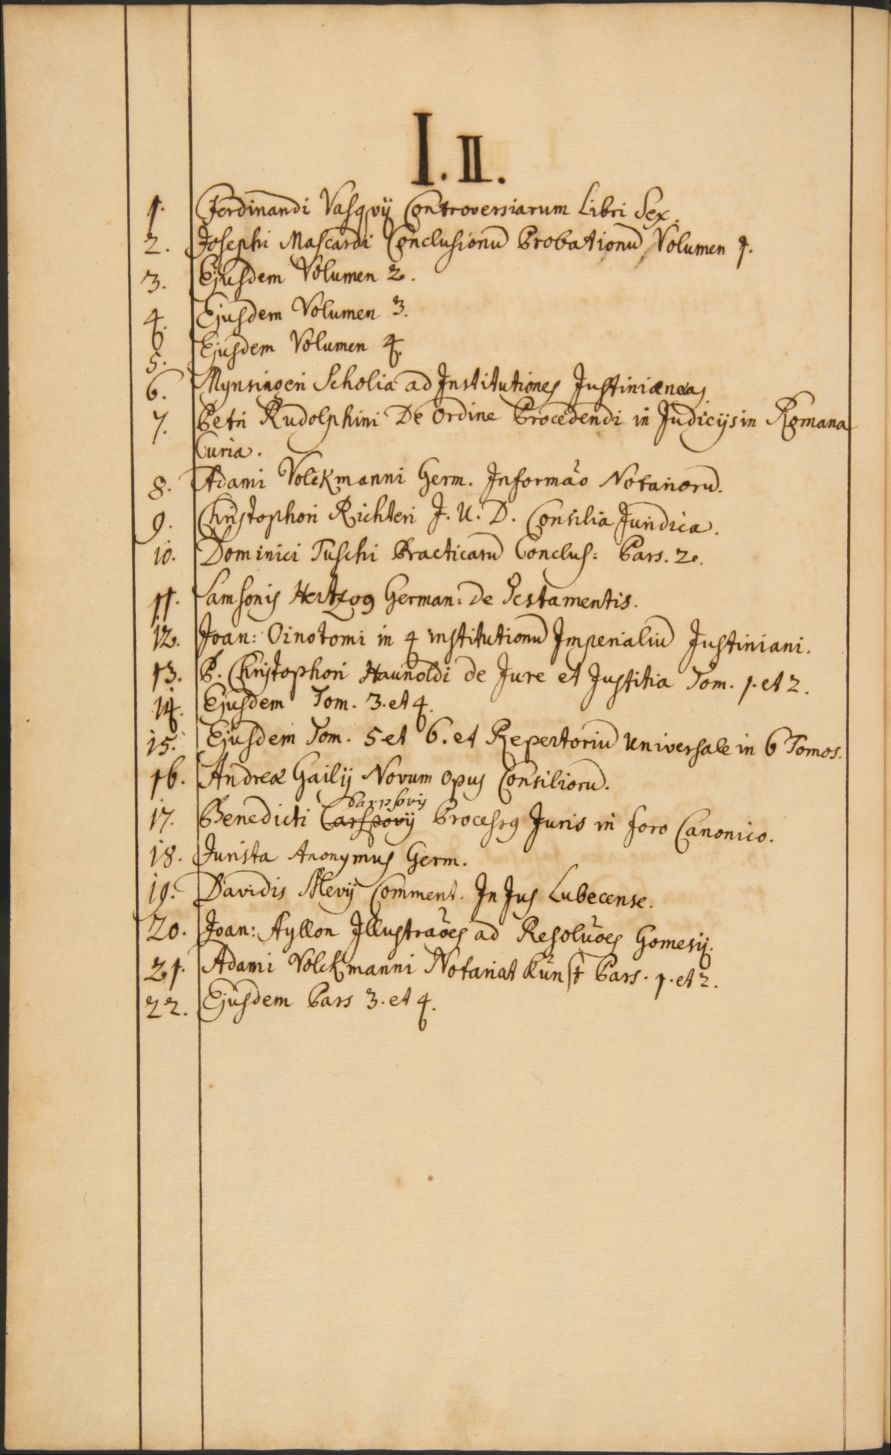 I. II.
1. Ferdinandi Vasqvij Controversiarum Libri Sex.
2. Josephi Mascardi Conclusionū Probationū Volumen 1.
3. Ejusdem Volumen 2.
4. Ejusdem Volumen 3.
5. Ejusdem Volumen 4.
6. Mynsingeri Scholia ad Institutiones Justinianeas.
7. Petri Rudolphini De Ordine Procedendi in Judicijs in Romana
Curia.
8. Adami Volckmanni Germ. Informāo Notariorū.
9. Christophori Richteri J. U. D. Consilia Juridica.
10. Dominici Tuschi Practicarū Conclus: Pars. 2.
11. Samsonis Hertzog German: de Testamentis.
12. Joan: Oinotomi in 4 institutionū Imperialiū Justiniani.
13. P. Christophori Haunoldi de Jure et Justitia Tom. 1. et 2.
14. Ejusdem Tom. 3. et 4.
15. Ejusdem Tom. 5 et 6. et Repertoriū universale in 6 Tomos.
16. Andreæ Gailij Novum opus Consiliorū.
17. Benedicti Carpzovij Processus Juris in foro Canonico.
18. Jurista Anonymus Germ.
19. Davidis Mevij Comment. In Jus Lubecense.
20. Joan: Ayllon Illustrāoes ad Resolūoes Gomesij.
21. Adami Volckmanni Notariat Künst Pars. 1. et 2.
22. Ejusdem Pars 3. et 4.